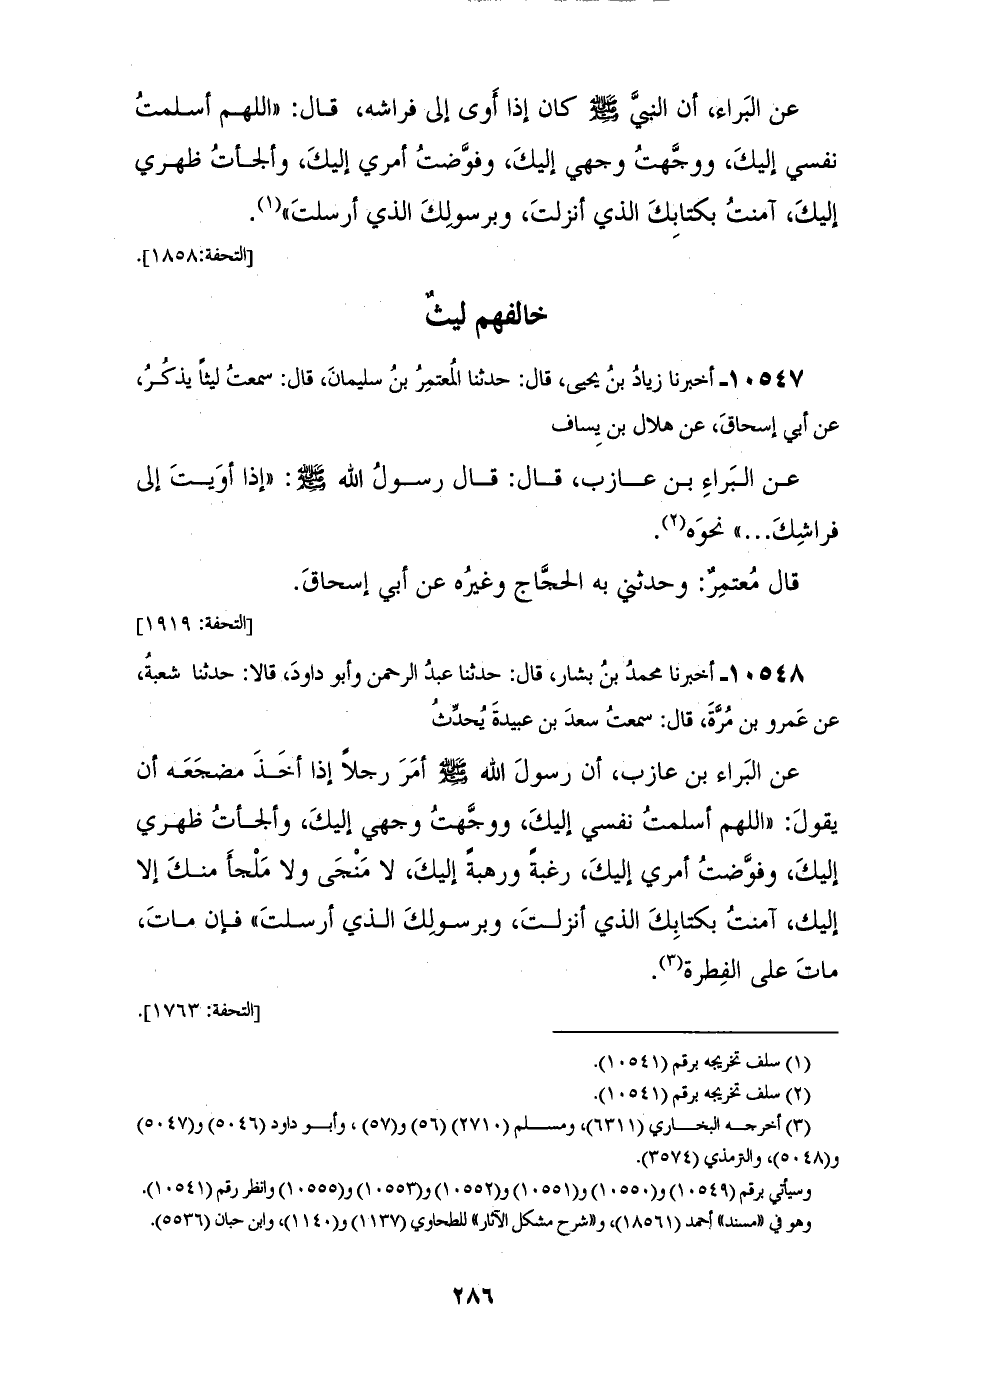 عن البَراء، أن النبيَّ ﷺ كان إذا أَوى إلى فراشه، قال: «اللهم أسلمتُ
نفسي إليكَ، ووجَّهتُ وجهي إليكَ، وفوَّضتُ أمري إليكَ، وألجأتُ ظهري
إليكَ، آمنتُ بكتابِكَ الذي أنزلتَ، وبرسولِكَ الذي أرسلتَ»(١).
[التحفة:١٨٥٨].
خالفهم ليثٌ
١٠٥٤٧ـ أخبرنا زيادُ بنُ يحيى، قال: حدثنا المُعتمِرُ بنُ سليمانَ، قال: سمعتُ ليثاً يذكُرُ،
عن أبي إسحاقَ، عن هلال بن يِساف
عن البَراءِ بن عازب، قال: قال رسولُ الله ﷺ: «إذا أوَيتَ إلى
فراشِكَ...» نحوَه(٢).
قال مُعتمِرٌ: وحدثني به الحجَّاج وغيرُه عن أبي إسحاقَ.
[التحفة: ١٩١٩]
١٠٥٤٨ـ أخبرنا محمدُ بنُ بشار، قال: حدثنا عبدُ الرحمن وأبو داودَ، قالا: حدثنا شعبةُ،
عن عَمرو بن مُرَّةَ، قال: سمعتُ سعدَ بن عبيدةَ يُحدِّثُ
عن البَراء بن عازب، أن رسولَ الله ﷺ أمَرَ رجلاً إذا أخَذَ مضجَعَه أن
يقولَ: «اللهم أسلمتُ نفسي إليكَ، ووجَّهتُ وجهي إليكَ، وألجأتُ ظهري
إليكَ، وفوَّضتُ أمري إليكَ، رغبةً ورهبةً إليكَ، لا مَنْجَى ولا مَلْجأَ منكَ إلا
إليك، آمنتُ بكتابِكَ الذي أنزلتَ، وبرسولِكَ الذي أرسلتَ» فإن ماتَ،
ماتَ على الفِطرة(٣).
[التحفة: ١٧٦٣].
(١) سلف تخريجه برقم (١٠٥٤١).
(٢) سلف تخريجه برقم (١٠٥٤١).
(٣) أخرجه البخاري (٦٣١١)، ومسلم (٢٧١٠) (٥٦) و(٥٧) ، وأبو داود (٥٠٤٦) و(٥٠٤٧)
و(٥٠٤٨)، والترمذي (٣٥٧٤).
وسيأتي برقم (١٠٥٤٩) و(١٠٥٥٠) و(١٠٥٥١) و(١٠٥٥٢) و(١٠٥٥٣) و(١٠٥٥٥) وانظر رقم (١٠٥٤١).
وهو في «مسند» أحمد (١٨٥٦١)، و«شرح مشكل الآثار» للطحاوي (١١٣٧) و(١١٤٠)، وابن حبان (٥٥٣٦).
٢٨٦